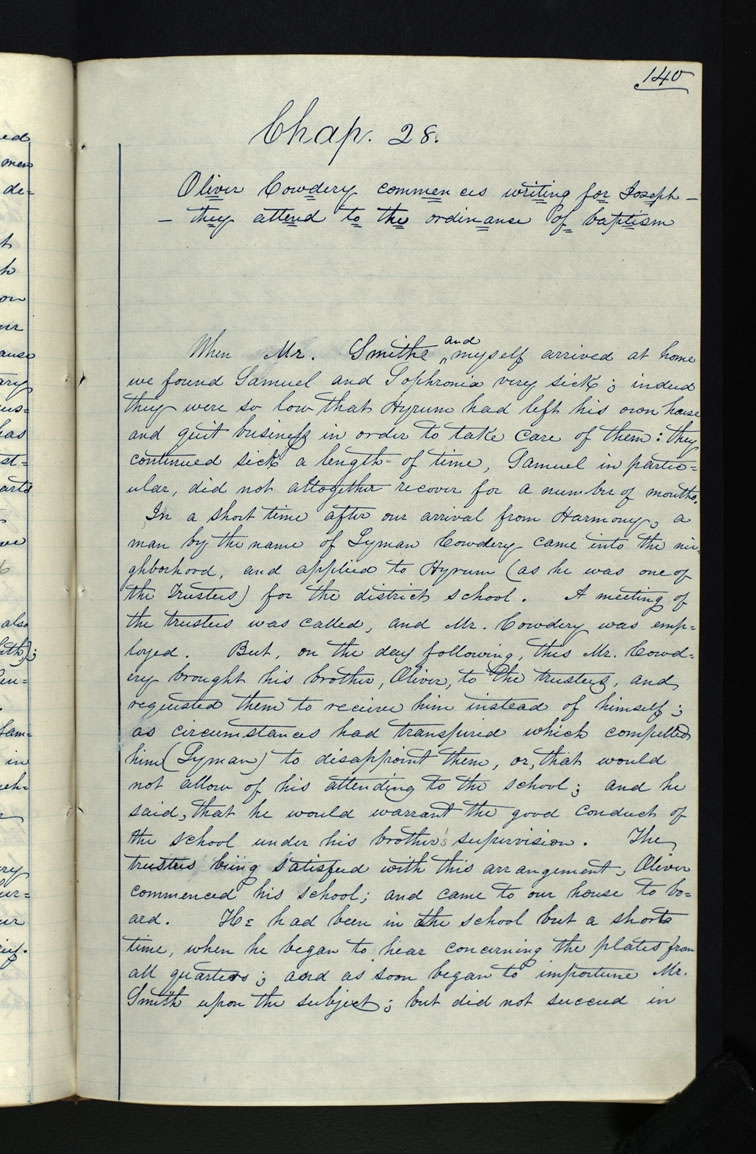 140
Chap. 28.
Oliver Cowdery commences writing for Joseph —
— they attend to the ordinance of baptism
When Mr. Smithe and myself arrived at home
we found Samuel and Sophronia very sick; indeed
they were so low that Hyrum had left his own house
and quit business in order to take care of them: they
continued sick a length of time, Samuel in partic=
ular, did not altogether recover for a number of months.
In a short time after our arrival from Harmony, a
man by the name of Lyman Cowdery came into the nei
ghborhood, and applied to Hyrum (as he was one of
the Trustees) for the district school. A meeting of
the trustees was called, and Mr. Cowdery was emp=
loyed. But, on the day following, this Mr. Cowd=
ery brought his brother, Oliver, to the trustees, and
requested them to receive him instead of himself;
as circumstances had transpired which compelled
him (Lyman) to disappoint them, or, that would
not allow of his attending to the school; and he
said, that he would warrant the good conduct of
the school under his brother's supervision. The
trustees being satisfied with this arrangement, Oliver
commenced his school; and came to our house to bo=
ard. He had been in the school but a short
time, when he began to hear concerning the plates from
all quarters; and as soon began to importune Mr.
Smith upon the subject; but did not succeed in
ed
men
de=
t
h
on
ur
ause
ary
has
st=
ve
also
in
ur